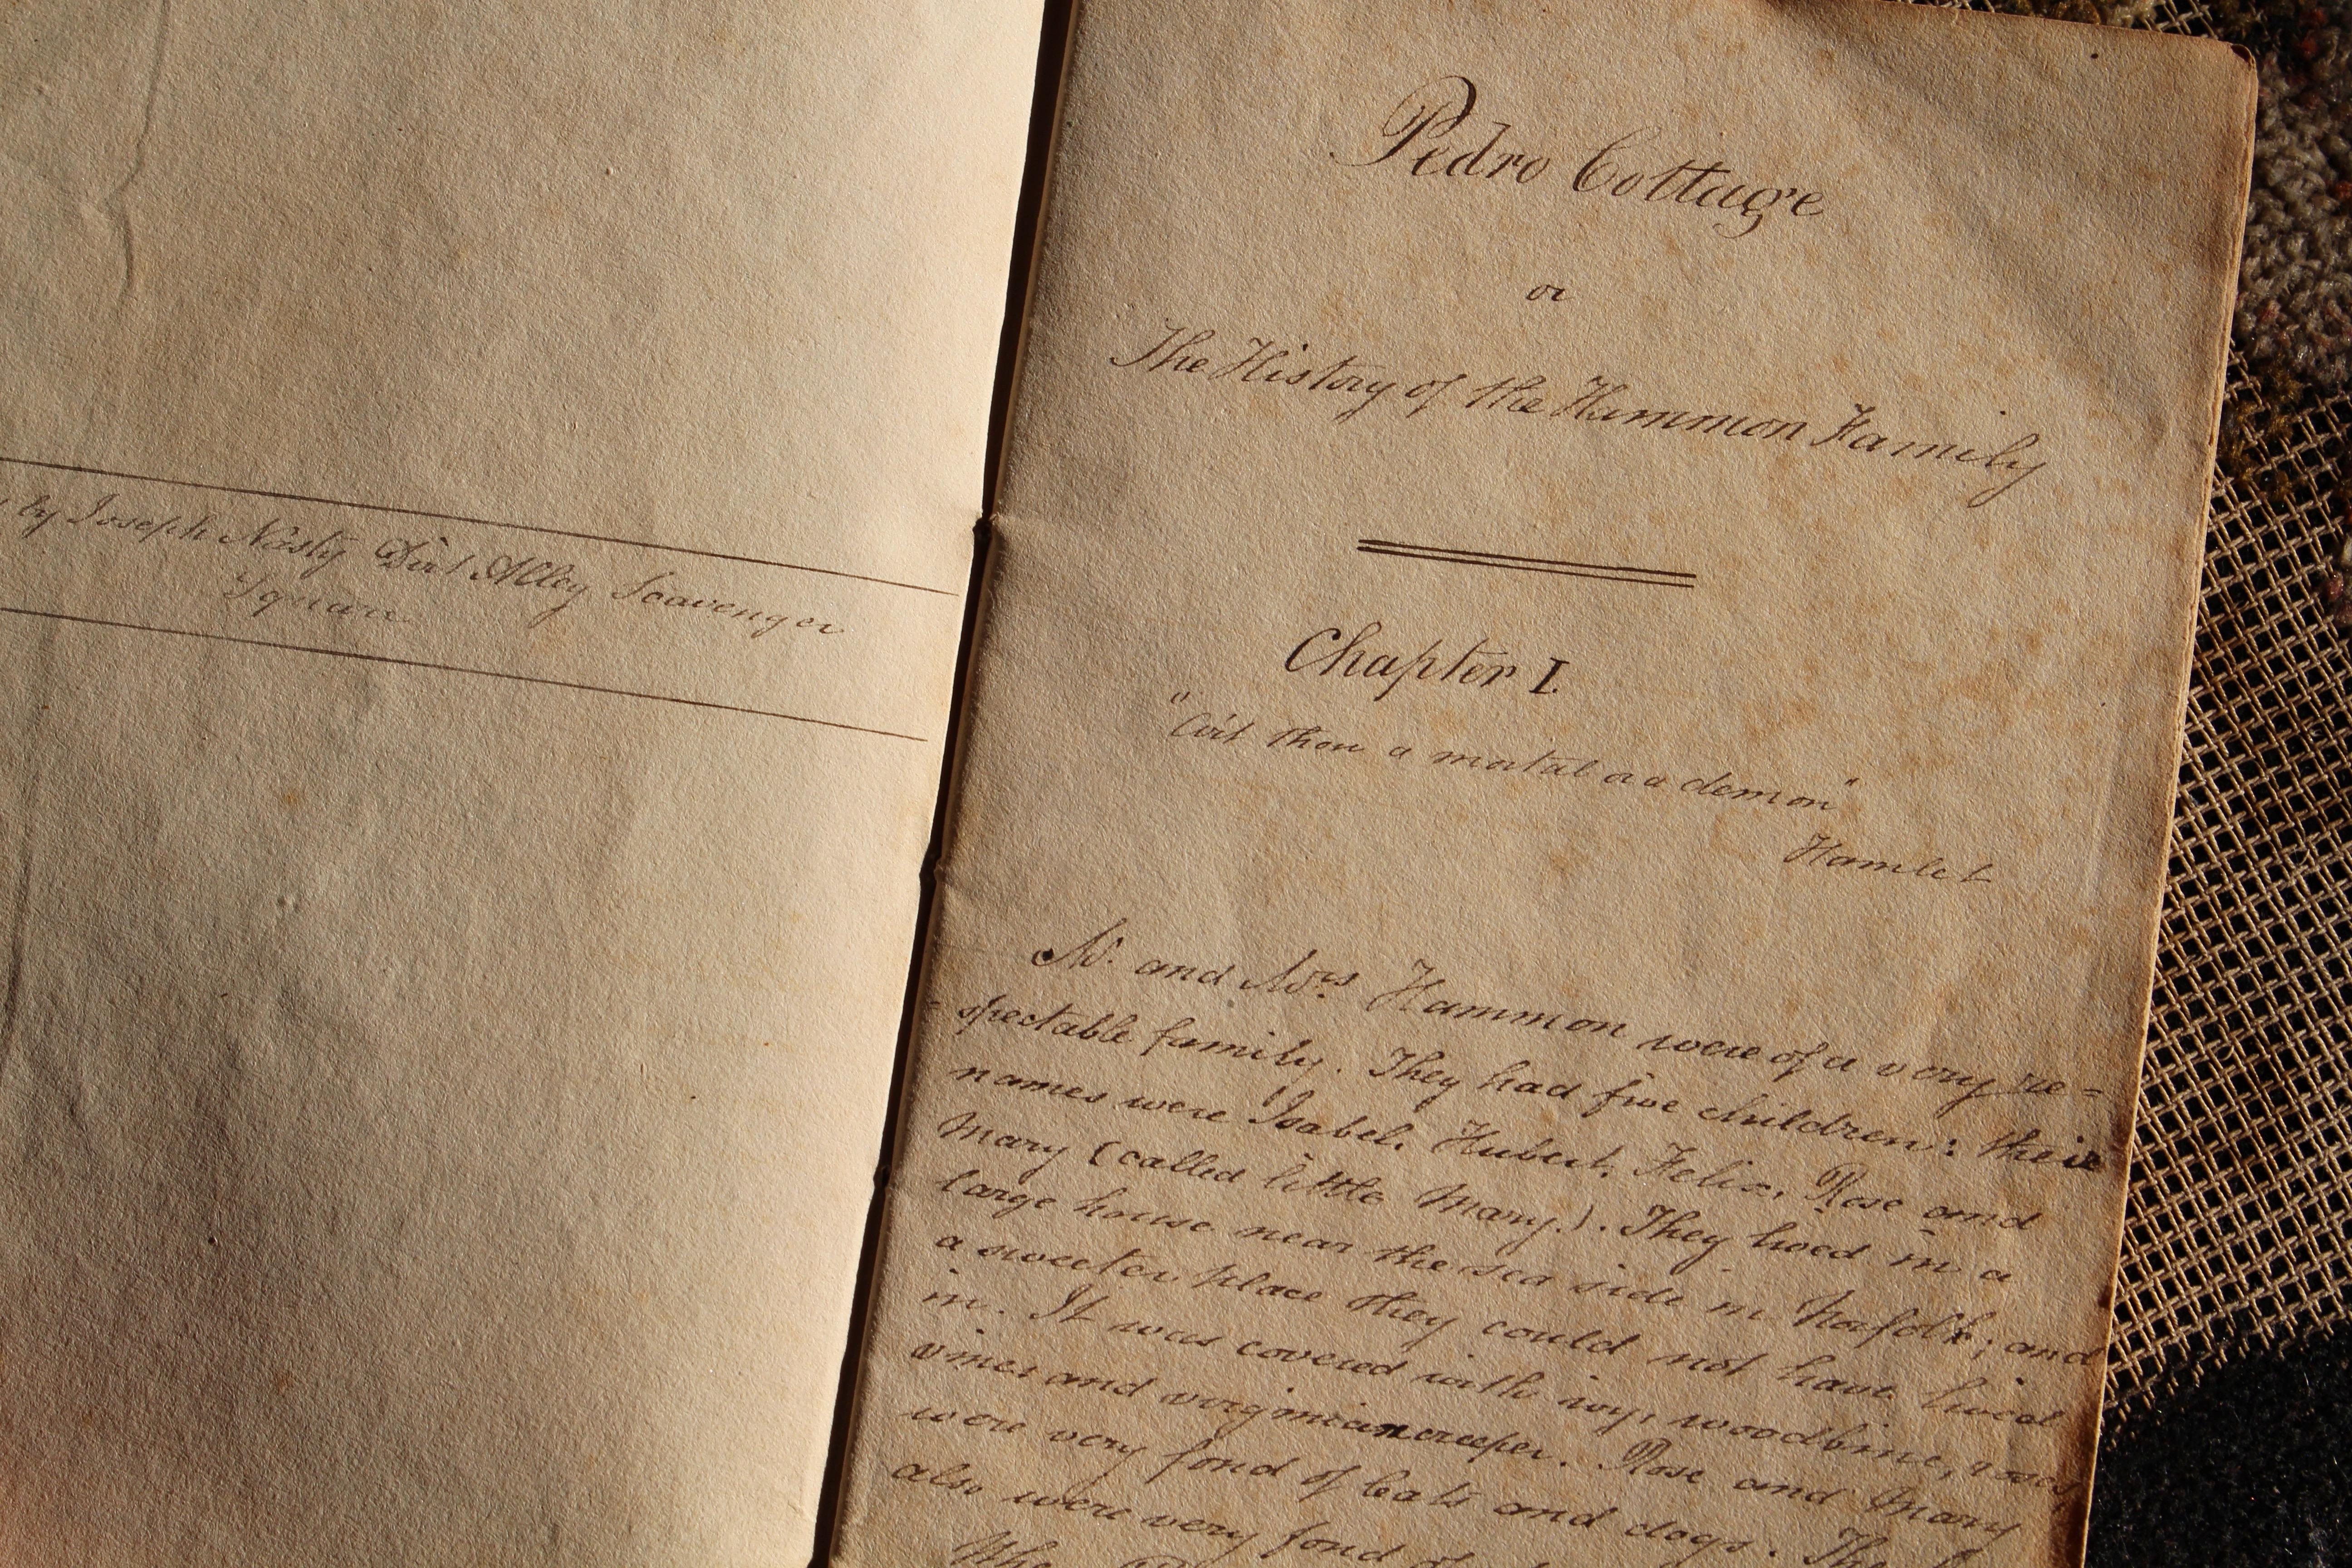 by Joseph Nasty Dirt Alley Scavenger
Square
Pedro Cottage
or
The History of the Hammon Family
Chapter I.
"Art thou a mortal or a demon"
Hamlet
Mr. and Mrs. Hammon were of a very re=
=spectable family. They had five children: their
names were Isabel, Hubert, Felix, Rose and
Mary (called little Mary.). They lived in a
large house near the sea side in Norfolk; and
a sweeter place they could not have lived
in. It was covered with ivy, woodbine, roses,
vines and virginian creeper. Rose and Mary
were very fond of Cats and dogs. They
also were very fond of